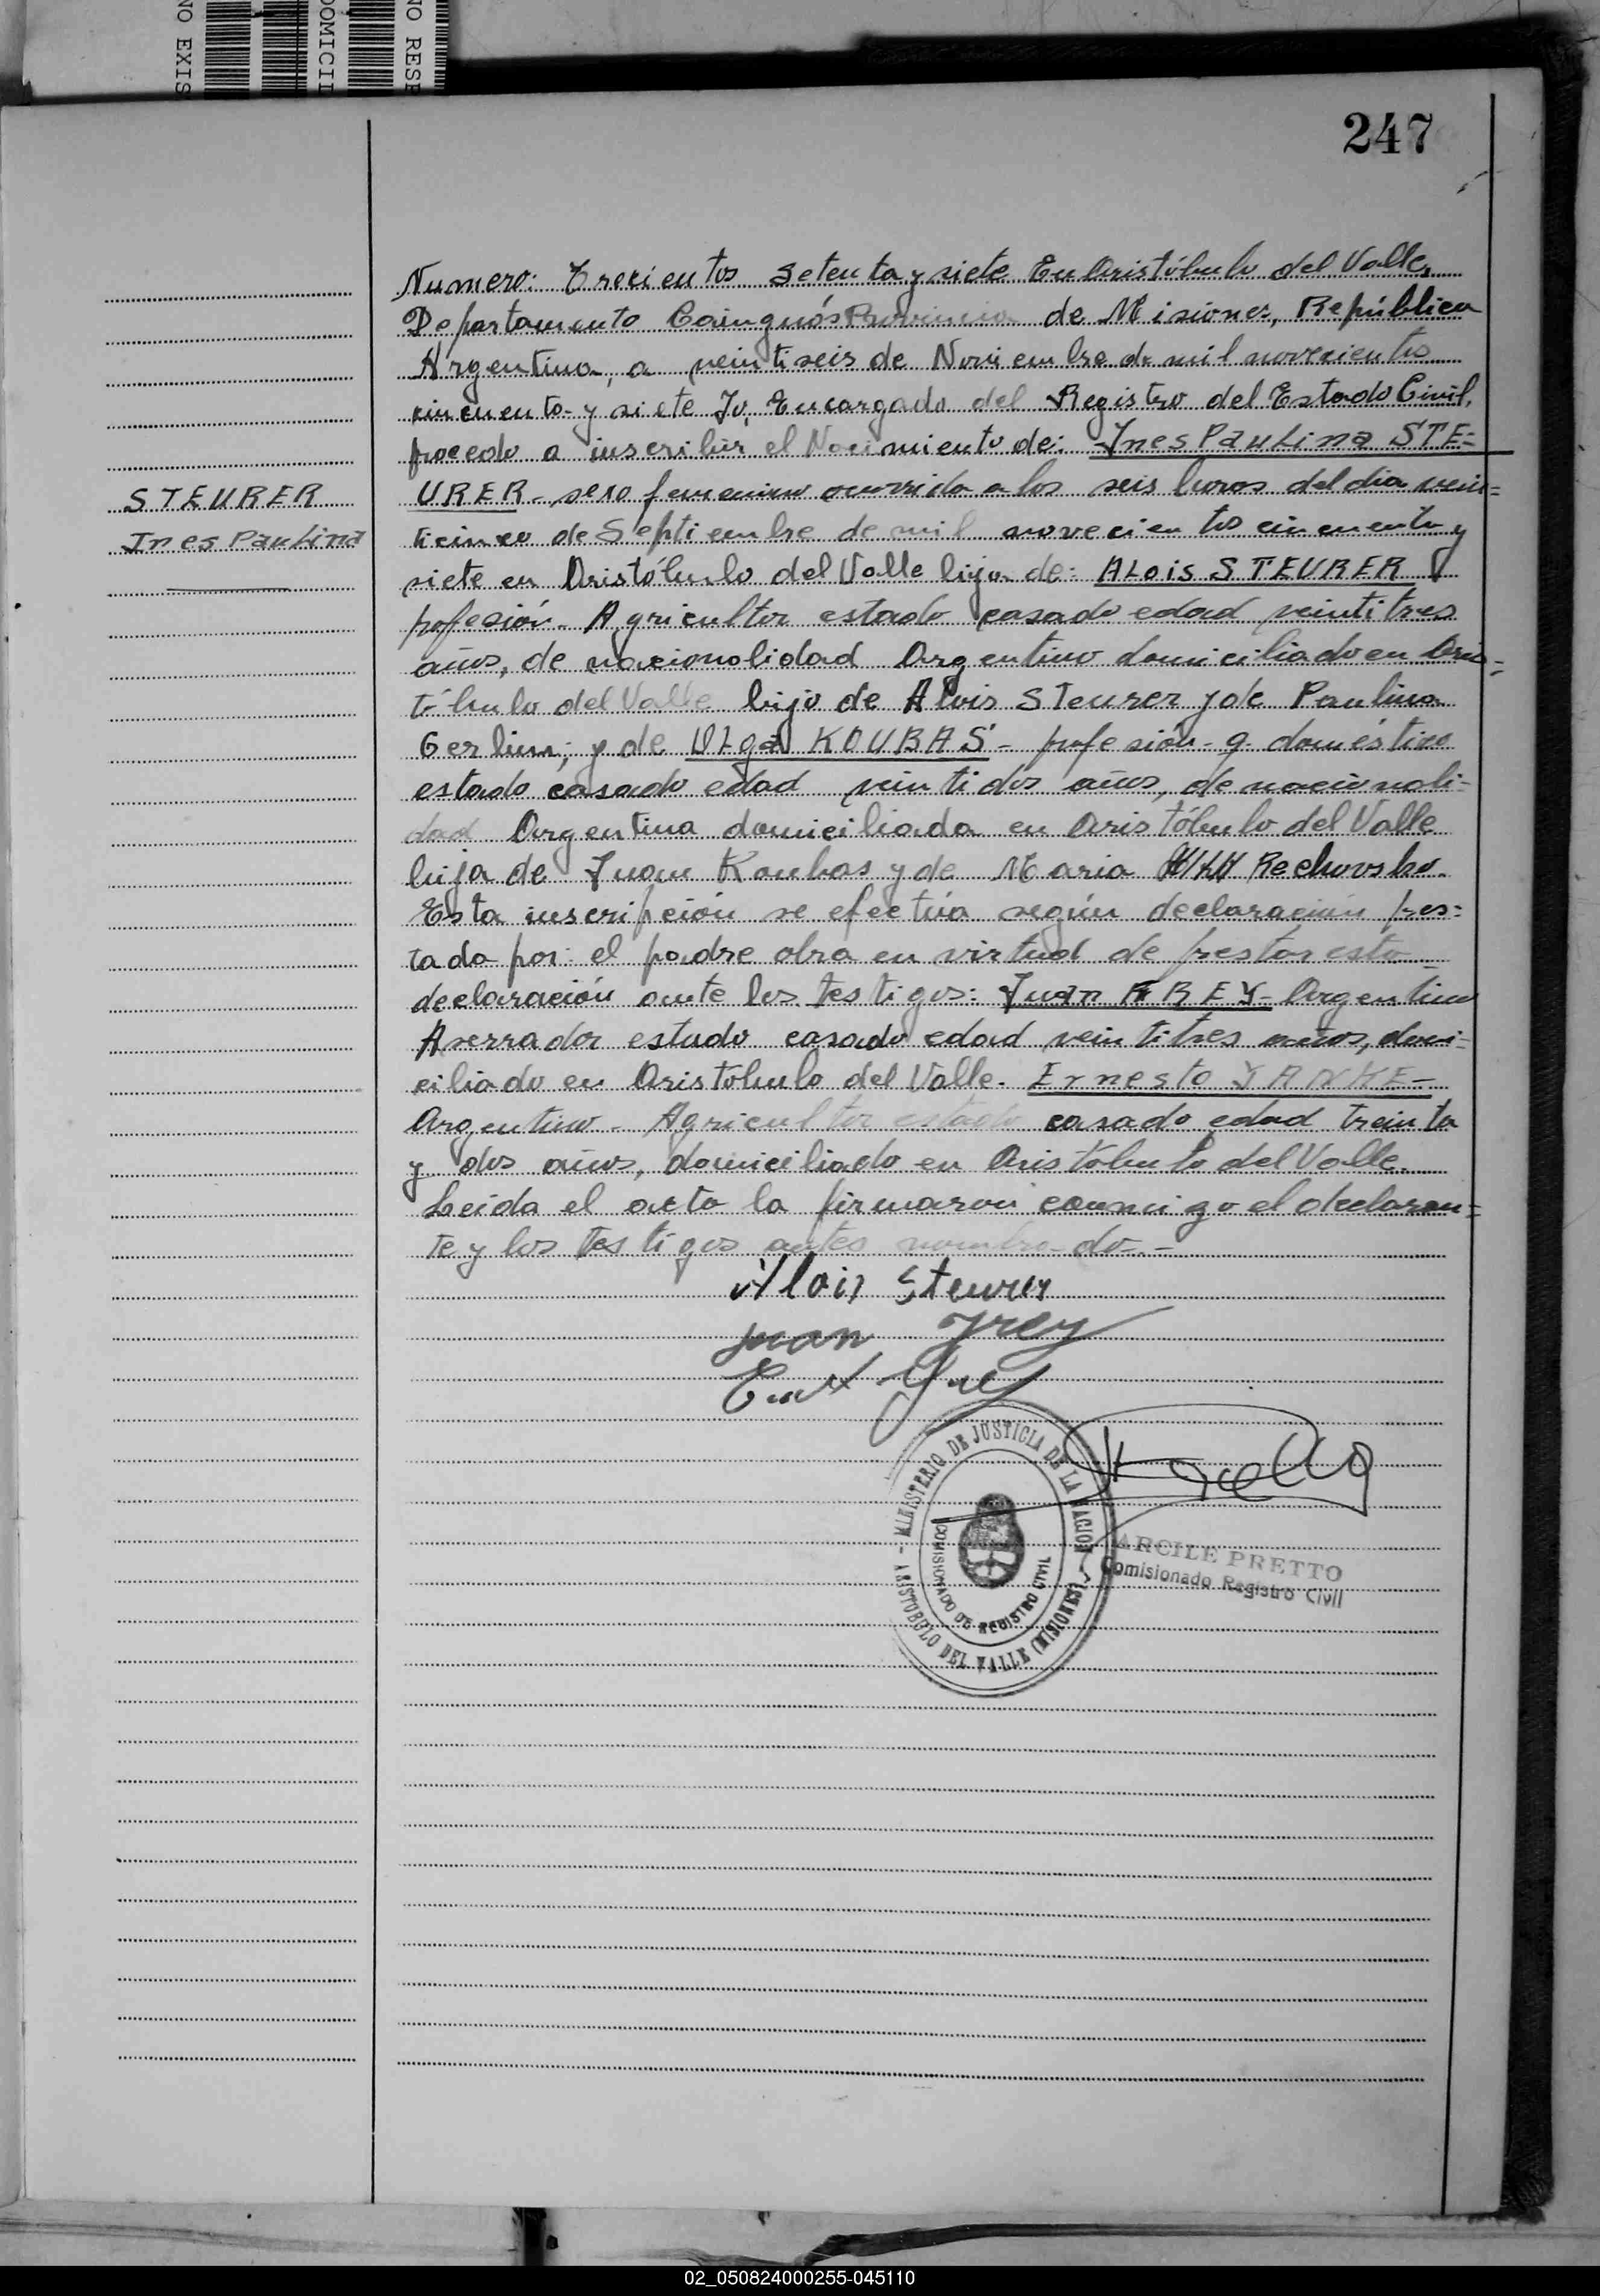 NO EXIS
DOMICIL
NO RESP
247
Numero: Trecientos Setenta y siete En Aristóbulo del Valle,
Departamento Cainguás Provincia de Misiones, República
Argentina, a veintiseis de Noviembre de mil novecientos
cincuenta y siete Yo, Encargado del Registro del Estado Civil,
procedo a inscribir el Nacimiento de: Ines Paulina STE=
STEURER
Ines Paulina
URER - sexo femenino ocurrido a las seis horas del dia vein=
ticinco de Septiembre de mil novecientos cincuenta y
siete en Aristóbulo del Valle hija de: ALOIS STEURER
profesión - Agricultor estado casado edad veintitres
años, de nacionalidad Argentino domiciliado en Aris=
tóbulo del Valle hijo de Alois Steurer y de Paulina
Gerlin; y de Olga KOUBAS - profesión - q. doméstico
estado casado edad veintidos años, de nacionali=
dad Argentina domiciliada en Aristóbulo del Valle
hija de Juan Koubas y de Maria Rechovsko.
Esta inscripción se efectúa según declaración pres=
tada por: el padre obra en virtud de prestar esta
declaración ante los testigos: Juan FREY - Argentino
Aserrador estado casado edad veintitres años, domi=
ciliado en Aristobulo del Valle. Ernesto YANKE -
Argentino - Agricultor estado casado edad treinta
y dos años, domiciliado en Aristóbulo del Valle.
Leida el acta la firmaron conmigo el declaran=
te y los testigos antes nombrado -
Alois Steurer
Juan Frey
MINISTERIO DE JUSTICIA DE LA NACION
COMISIONADO DE REGISTRO CIVIL
ARISTOBULO DEL VALLE (MISIONES)
ARCILE PRETTO
Comisionado Registro Civil
02_050824000255-045110